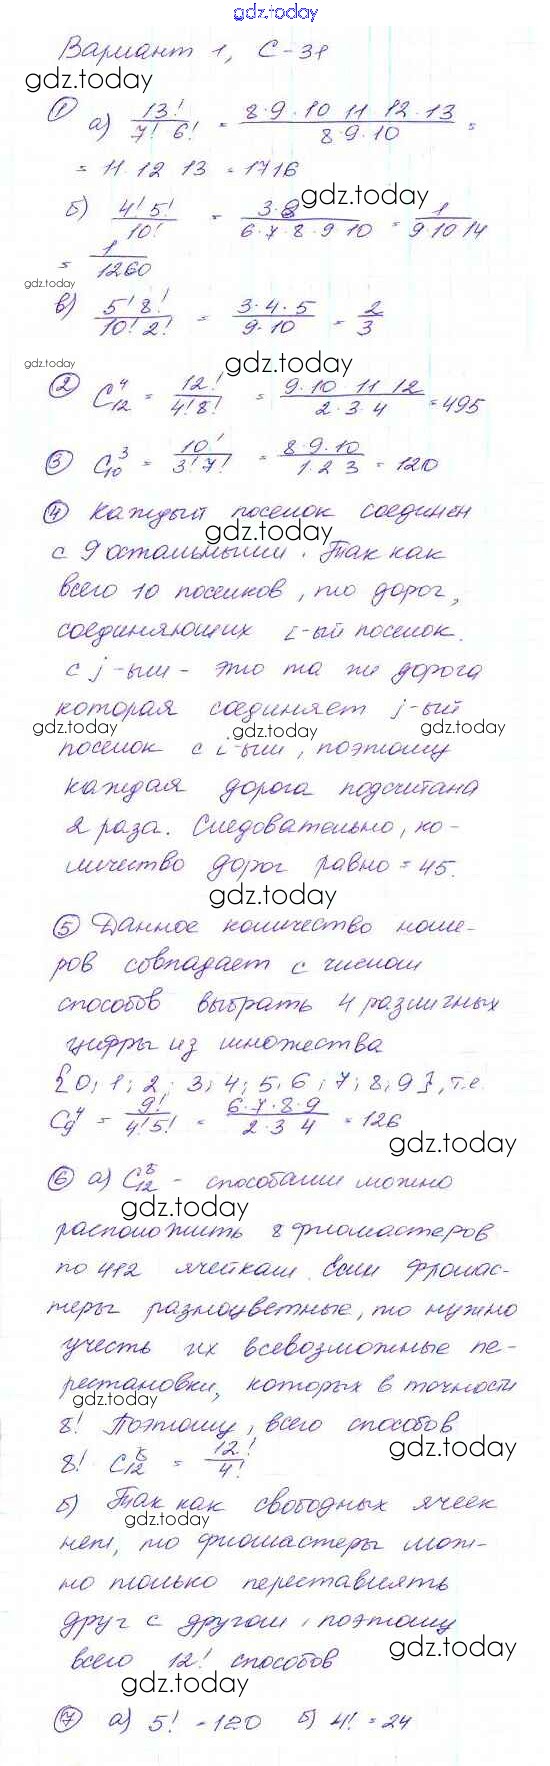 gdz.today
Вариант 1, С-31
gdz.today
① а) 13! / 7! 6! = 8·9·10 11 12·13 / 8·9·10 =
= 11 12 13 = 1716
gdz.today
б) 4! 5! / 10! = 3·8 / 6·7·8·9·10 = 1 / 9·10 14
= 1 / 1260
gdz.today
в) 5! 8! / 10! 2! = 3·4·5 / 9·10 = 2 / 3
gdz.today gdz.today
② C₁₂⁴ = 12! / 4! 8! = 9·10 11 12 / 2·3·4 = 495
③ C₁₀³ = 10! / 3! 7! = 8·9·10 / 1·2 3 = 120
④ Каждый поселок соединен
gdz.today
с 9 остальными. Так как
всего 10 поселков, то дорог,
соединяющих i-ый поселок
с j-ым - это та же дорога
которая соединяет j-ый
gdz.today gdz.today gdz.today
поселок с i-ым, поэтому
каждая дорога подсчитана
2 раза. Следовательно, ко-
личество дорог равно = 45.
gdz.today
⑤ Данное количество номе-
ров совпадает с числом
способов выбрать 4 различных
цифры из множества
{0; 1; 2; 3; 4; 5; 6; 7; 8; 9}, т.е.
C₉⁴ = 9! / 4! 5! = 6·7·8·9 / 2·3 4 = 126
gdz.today
⑥ а) C₁₂⁸ - способами можно
gdz.today
расположить 8 фломастеров
по 412 ячейкам. Если флomас-
теры разноцветные, то нужно
учесть их всевозможные пе-
рестановки, которых в точности
gdz.today gdz.today
8! Поэтому, всего способов
8! C₁₂⁸ = 12! / 4!
gdz.today
б) Так как свободных ячеек
gdz.today
нет, то фломастеры мож-
но только переставлять
друг с другом, поэтому
gdz.today
всего 12! способов
gdz.today
⑦ а) 5! = 120 б) 4! = 24
gdz.today